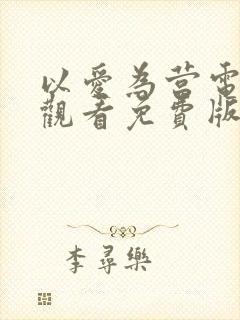 以愛為營電
觀看免費版
李尋樂